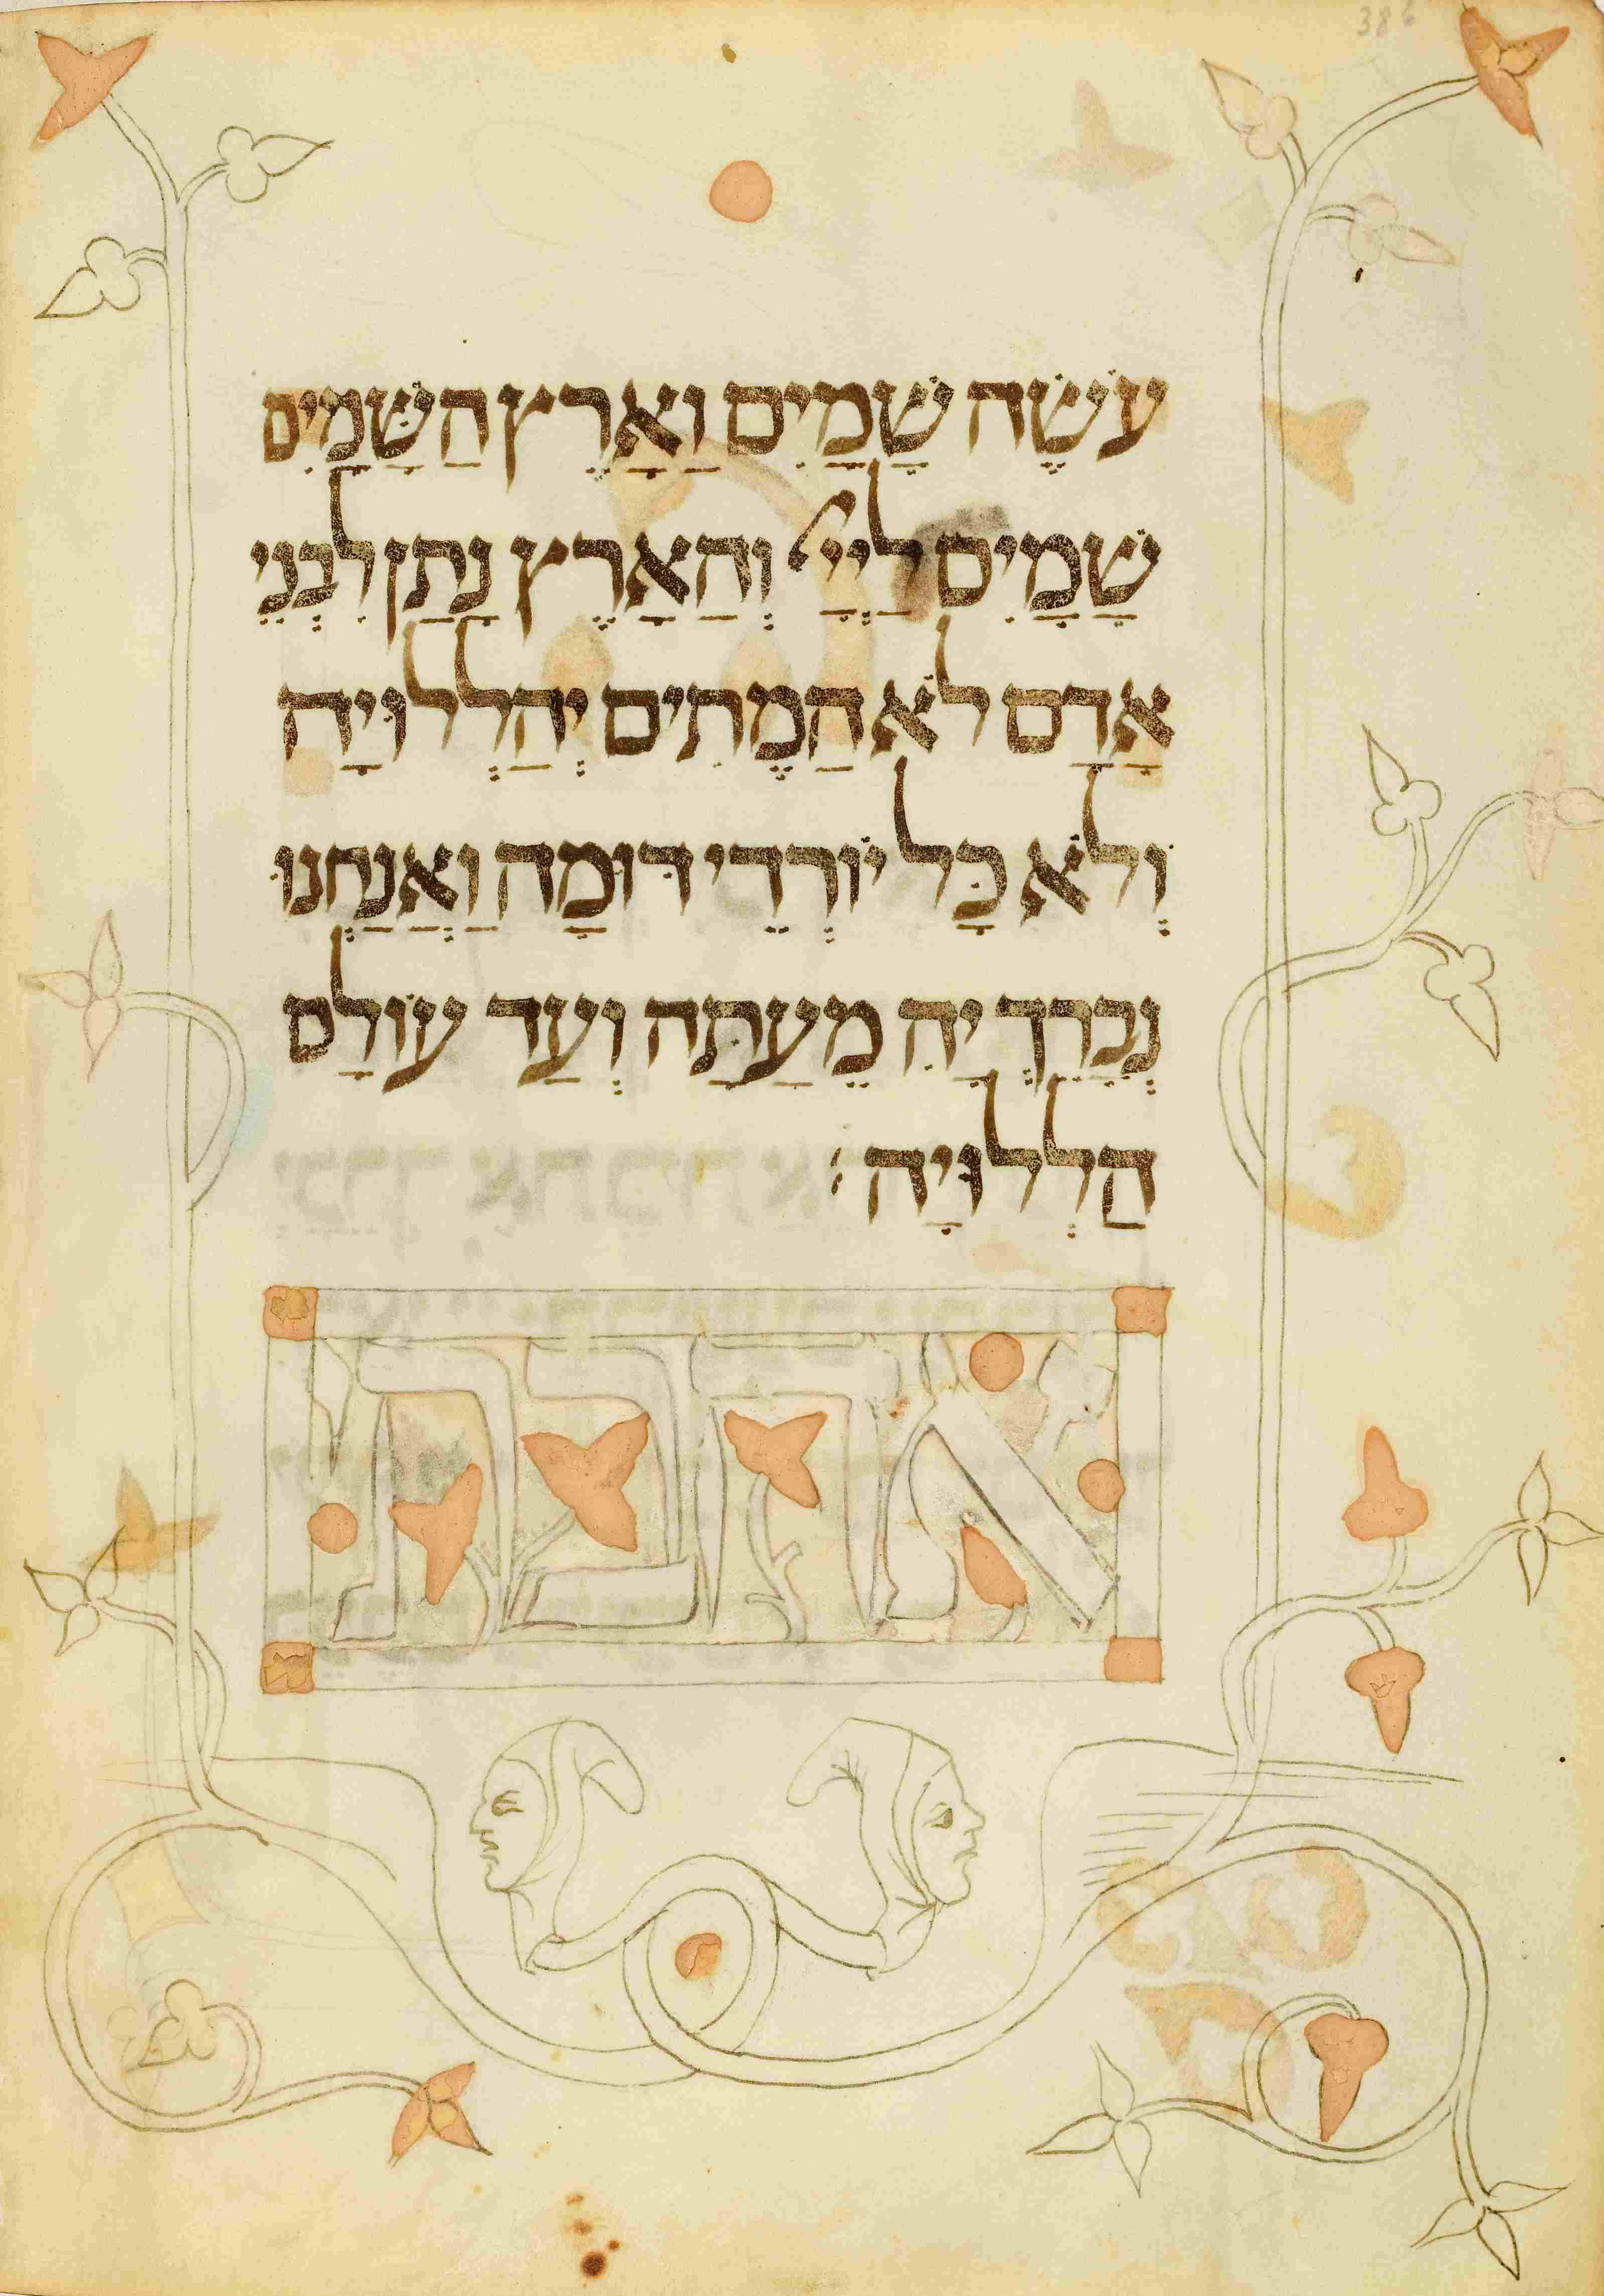 38b
עֹשֶׂה שָׁמַיִם וָאָרֶץ הַשָּׁמַיִם
שָׁמַיִם לַיְיָ וְהָאָרֶץ נָתַן לִבְנֵי
אָדָם לֹא הַמֶתִים יְהַלְלוּ יָה
וְלֹא כָּל יוֹרְדֵי דּוּמָה וַאֲנַחְנוּ
נְבָרֵךְ יָהּ מֵעַתָּה וְעַד עוֹלָם
הַלְלוּיָהּ׃
אהבתי